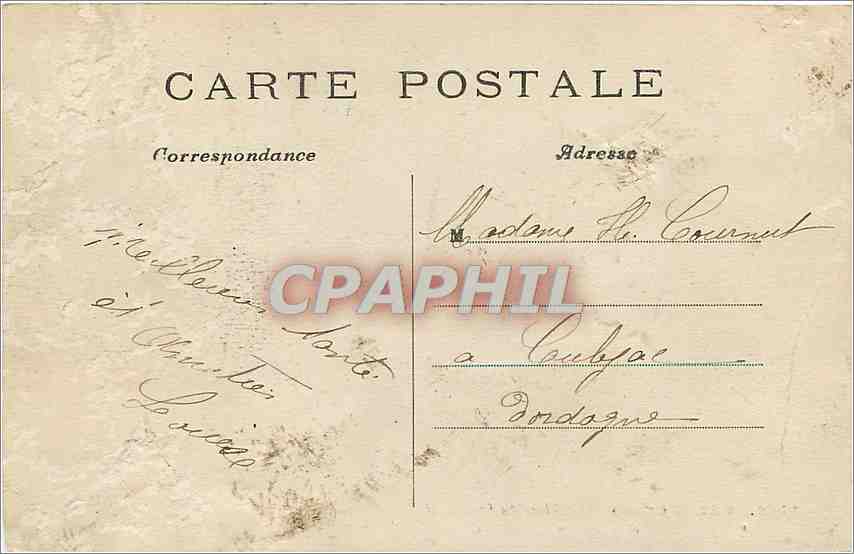 CARTE POSTALE
Correspondance
Adresse
Meilleure santé
et amitiés
Louise
M
Madame H. Cournut
CPAPHIL
a Cubjac
Dordogne